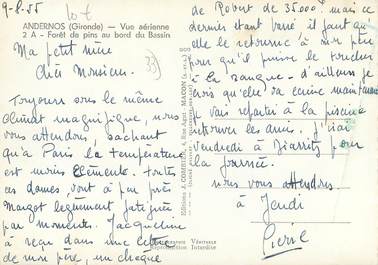 9-8-55
ANDERNOS (Gironde) — Vue aérienne
2 A - Forêt de pins au bord du Bassin
Ma petit
chers Monsieur.
Toujours sous le même
climat magnifique, nous
vous attendons, sachant
qu'à Paris la température
est moins clémente. Toutes
ces dames, sont à peu près
Margot légèrement fatiguée
par moments. Jacqueline
a reçu dans une lettre
de mon père, un chèque
Editions J. COMBIER, 4, Rue Agut MACON (S.-et-L.)
Photographie Véritable
Reproduction Interdite
de Pobut de 35.000 mais ce
dernier étant barré il faut qu'
elle le retourne à mon père
pour qu'il puisse le toucher
à la banque - d'ailleurs je
crois qu'elle va écrire maintenant
je vais repartir à la piscine
retrouver les amis. J'irai
vendredi à Biarritz pour
la journée.
nous vous attendons
à Jeudi